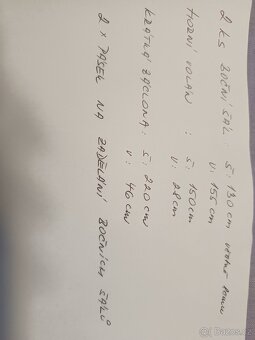 2 KS BOČNÍ ŠÁL: Š: 120 cm včetně lemu
V: 155 cm
HORNÍ VOLÁN : Š: 150 cm
V: 28 cm
KRÁTKÁ ZÁCLONA: Š: 220 cm
V: 46 cm
2 x PÁSEK NA ZADĚLÁNÍ BOČNÍCH ŠÁLŮ